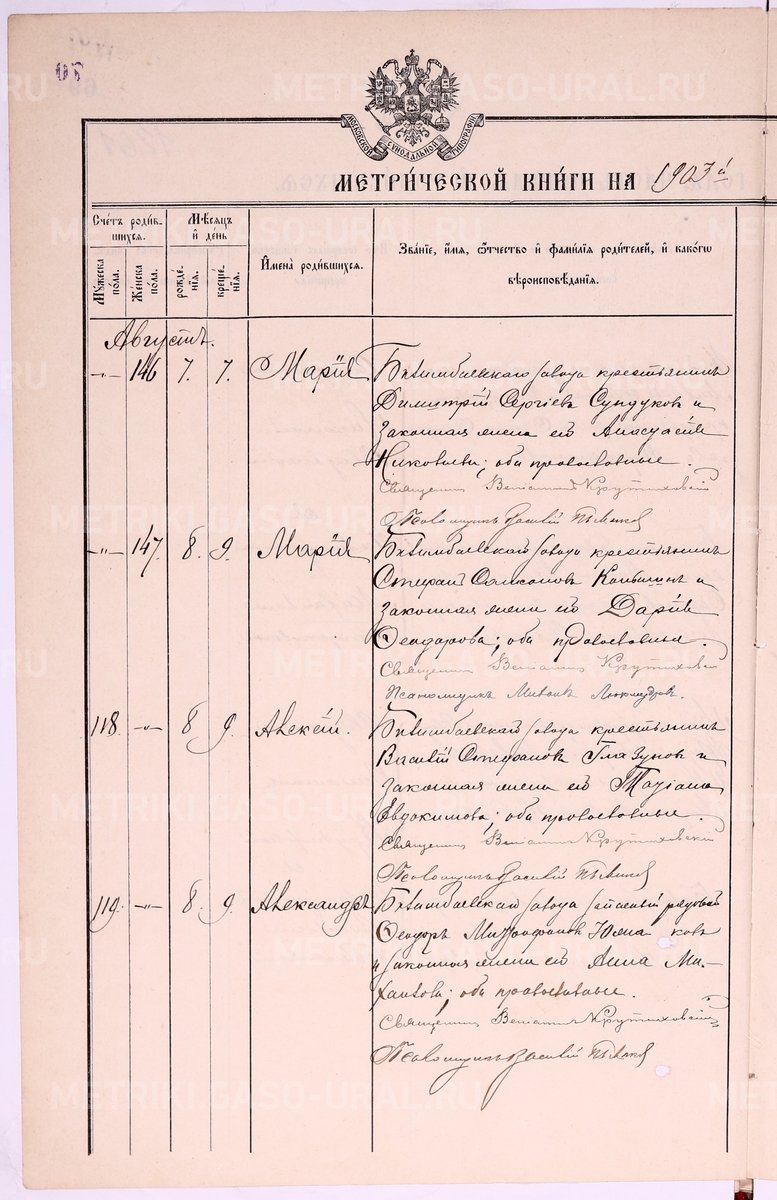 МОСКОВСКОЙ СѴНОДАЛЬНОЙ ТИПОГРАФІИ
МЕТРИ́ЧЕСКОЙ КНИ́ГИ НА 1903 й
Сче́тъ роди́вшихся.
Мѣ́сяцъ и де́нь
Му́жеска по́ла.
Же́нска по́ла.
рожде́нія.
креще́нія.
И҆мена̀ роди́вшихся.
Зва́ніе, и҆́мя, ѻ҆́тчество и҆ фами́лія роди́телей, и҆ како́гѡ вѣроисповѣ́данія.
Августъ.
—„— 146 7. 7. Марія
Билимбаевскаго завода крестьянинъ
Димитрій Сергіевъ Сундуковъ и
законная жена его Анастасія
Николаева; оба православные.
Священникъ Веніаминъ Крутиховскій
Псаломщикъ Василій
—„— 147. 8. 9. Марія
Билимбаевскаго завода крестьянинъ
Стефанъ и
законная жена его Дарія
Ѳеодорова; оба православные.
Священникъ Веніаминъ Крутиховскій
Псаломщикъ
118. —„— 8 9. Алексій.
Билимбаевскаго завода крестьянинъ
Василій Стефановъ Глазуновъ и
законная жена его Татіана
Евдокимова; оба православные.
Священникъ Веніаминъ Крутиховскій
Псаломщикъ Василій
119. —„— 8. 9. Александръ
Билимбаевскаго завода запасный рядовой
Ѳеодоръ Митрофановъ
и законная жена его Анна Ми-
хаилова; оба православные.
Священникъ Веніаминъ Крутиховскій
Псаломщикъ Василій
METRIKI.GASO-URAL.RU